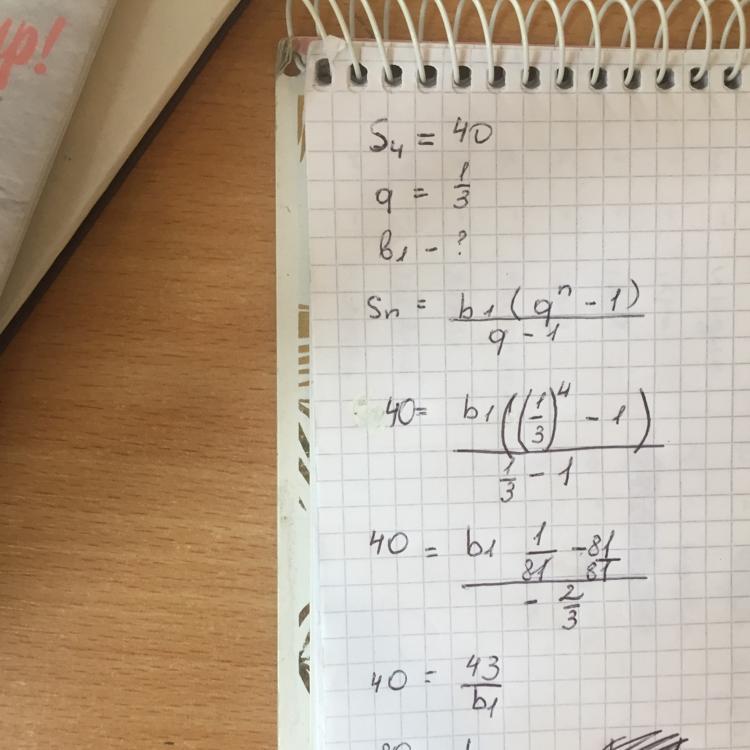 up!
S₄ = 40
q = 1/3
b₁ - ?
Sn = b₁(qⁿ - 1) / q - 1
40 = b₁((1/3)⁴ - 1) / 1/3 - 1
40 = b₁ 1/81 - 81/81 / - 2/3
40 = 43/b₁